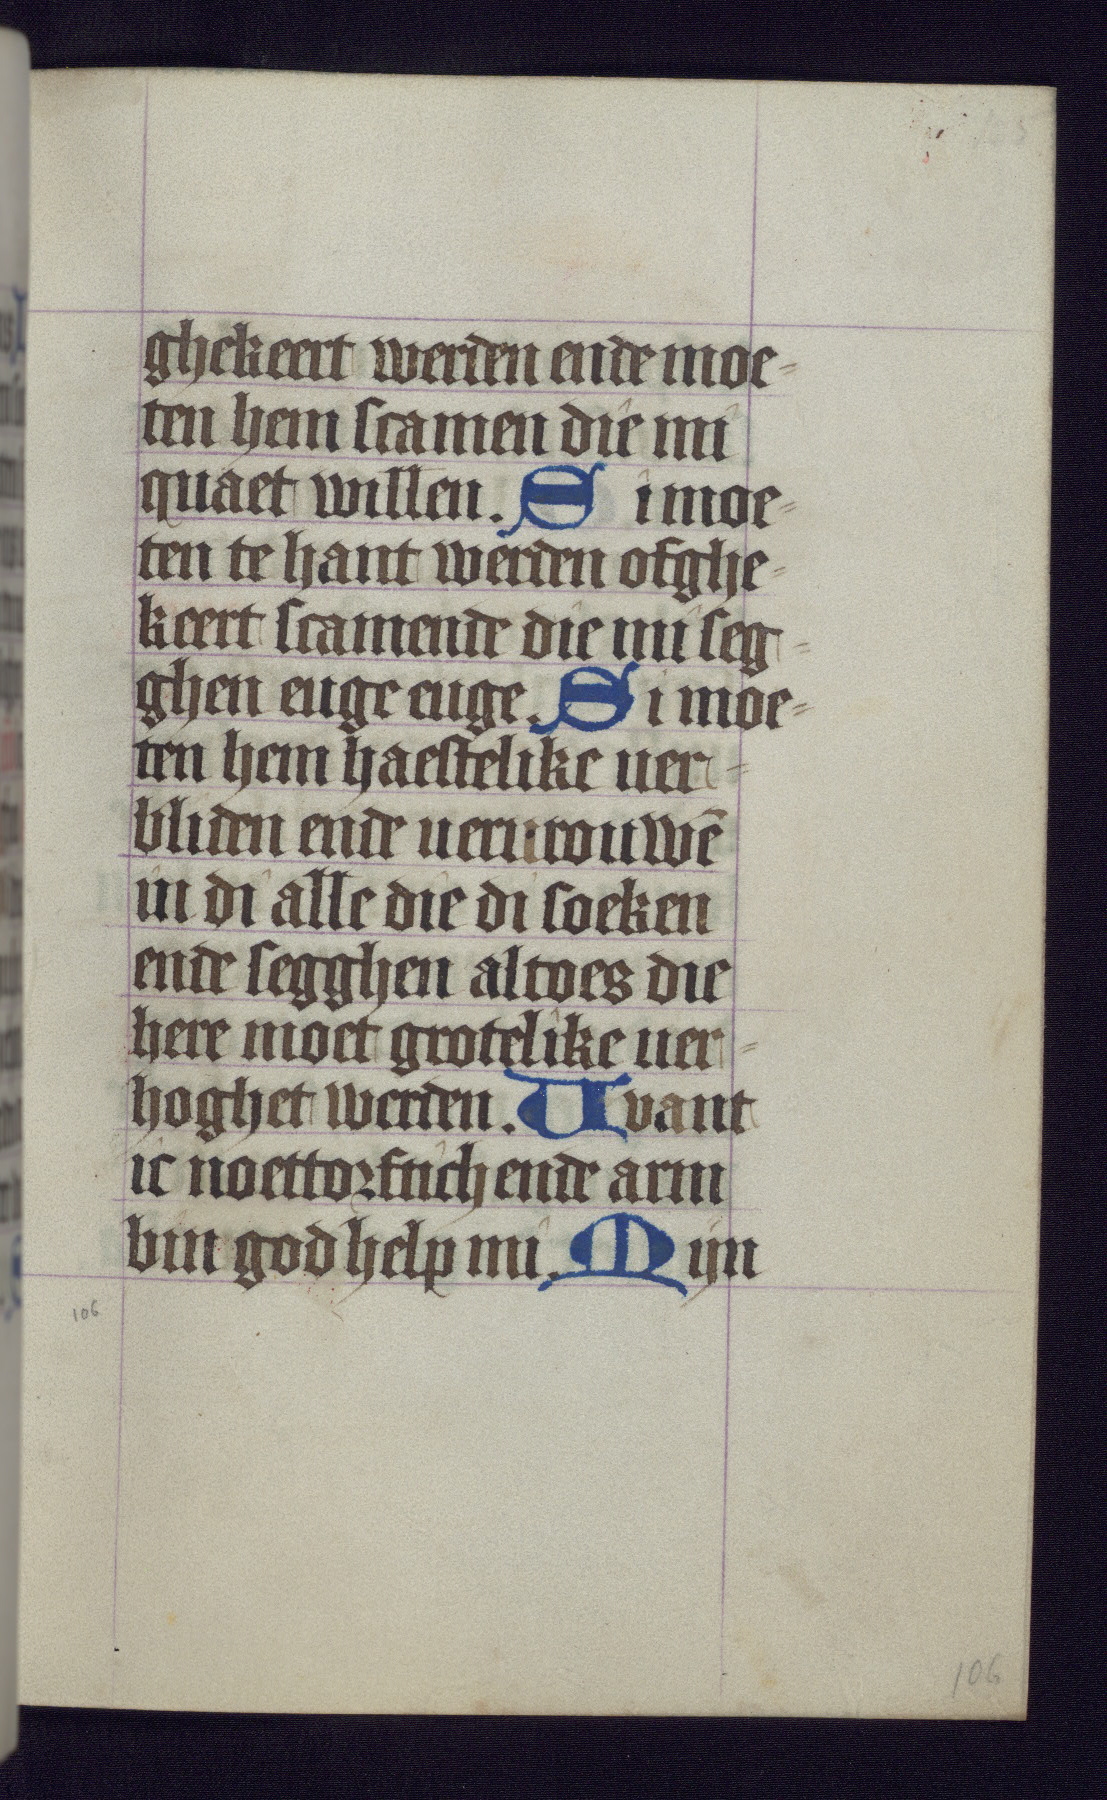 ghekeert werden ende moe-
ten hem scamen die mi
quaet willen. S i moe-
ten te hant werden ofghe-
keert scamende die mi seg-
ghen euge euge. Si moe-
ten hem haestelike uer-
bliden ende uerurouwē
in di alle die di soeken
ende segghen altoes die
here moet grotelike uer-
hoghet werden. Uvant
ic noettorftich ende arm
bin god help mi. Mijn
106
106